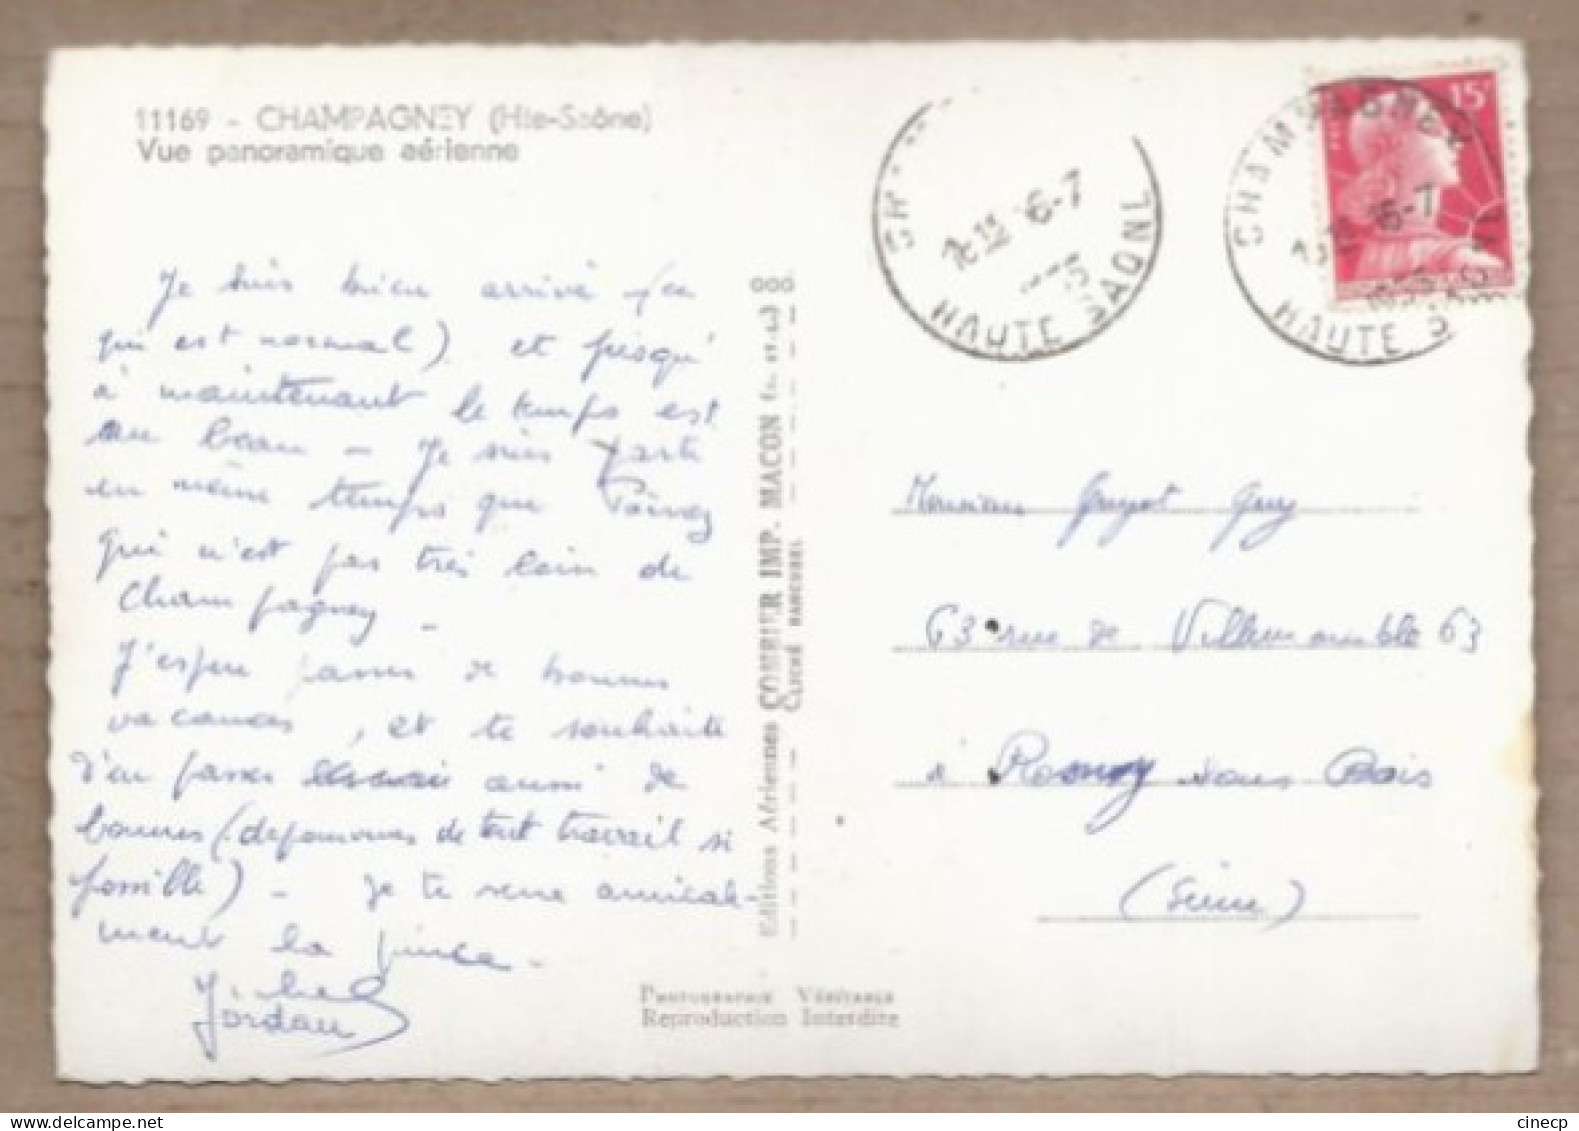 11169 - CHAMPAGNEY (Hte-Saône)
Vue panoramique aérienne
Je suis bien arrivé (ce
qui est normal) et jusqu'
à maintenant le temps est
au beau - Je suis parti
en même temps que
qui n'est pas très loin de
Champagney -
J'espère passer de bonnes
vacances, et te souhaite
d'en passer aussi de
bonnes (dépourvues de tout travail si
possible) - Je te serre amicale-
ment la pince -
Jordan
Editions Aériennes COMBIER IMP. MACON (S. et L.)
CLICHÉ RANCUREL
PHOTOGRAPHIE VÉRITABLE
Reproduction Interdite
HAUTE SAONE
16-7
15F
CHAMPAGNEY
16-7
HAUTE SAONE
Monsieur Guyot Guy
63 rue de Villemomble 63
à Rosny sous Bois
(Seine)
cinecp